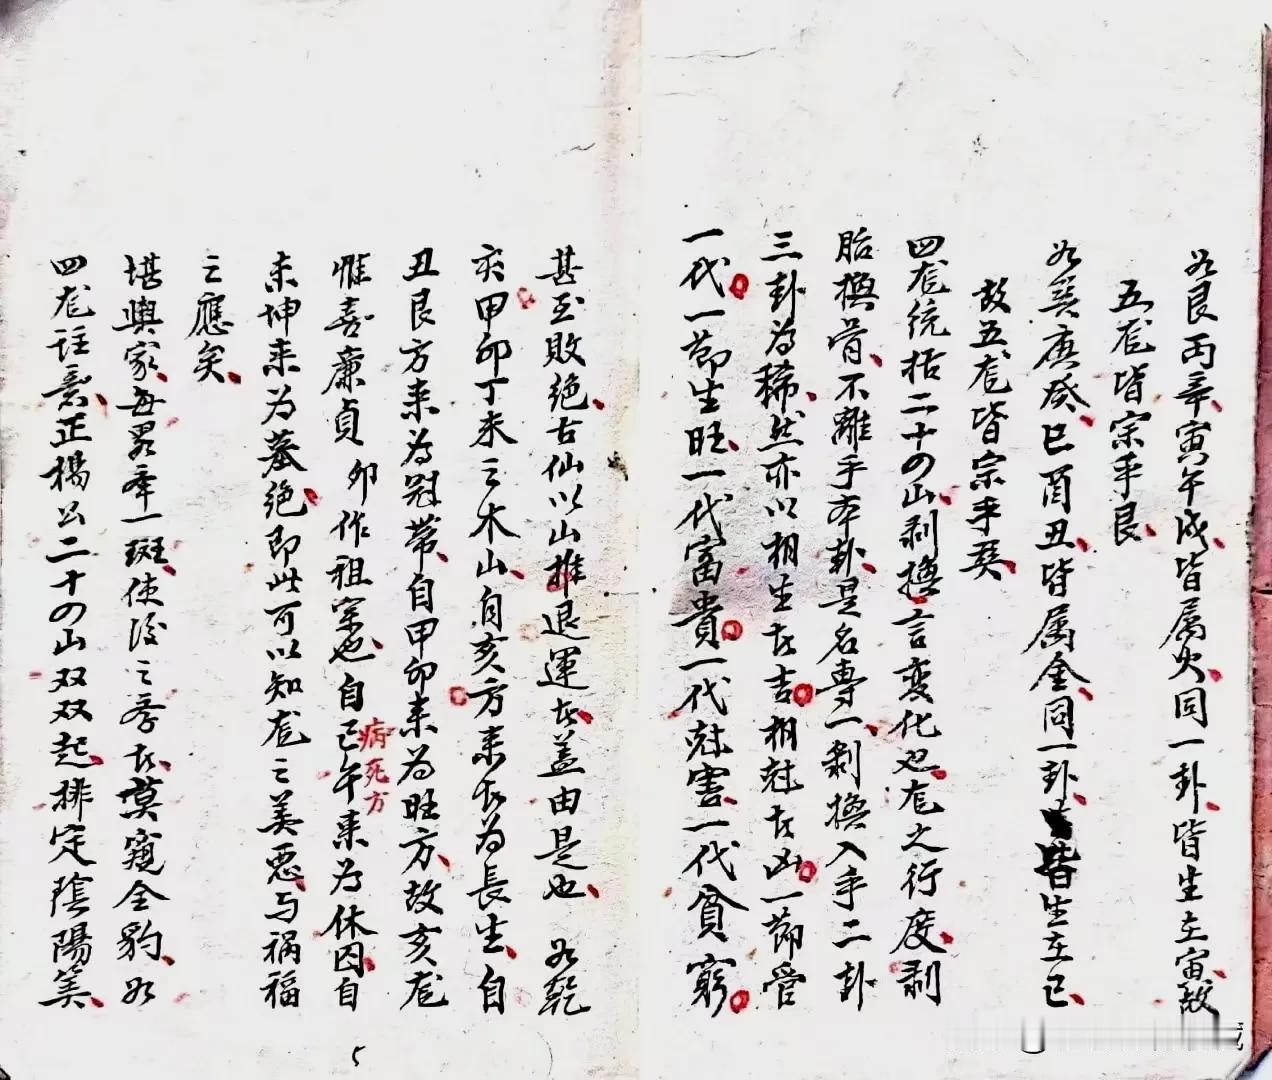 如艮丙辛寅午戌皆属火同一卦皆生在寅故
五尨皆宗乎艮
如巽庚癸巳酉丑皆属金同一卦皆生在巳
故五尨皆宗乎巽
四尨統括二十四山剥換言变化也尨之行度剥
胎換骨不離乎本卦是名専一剥換入手二卦
三卦為稀然亦以相生者吉相尅者凶一節管
一代一節生旺一代富貴一代尅害一代貧窮
甚至敗绝古仙以山推退運者盖由是也 如乾
亥甲卯丁未之木山自亥方来者為長生自
丑艮方来為冠帶自甲卯来為旺方故亥尨
惟喜廉貞 卯作祖宗也自巳午来為休囚自
病死方
未坤来為墓绝即此可以知尨之美惡与禍福
之應矣
堪輿家每畧举一斑使後之者莫窺全豹如
四尨註素正楊公二十四山双双起排定陰陽筭
5